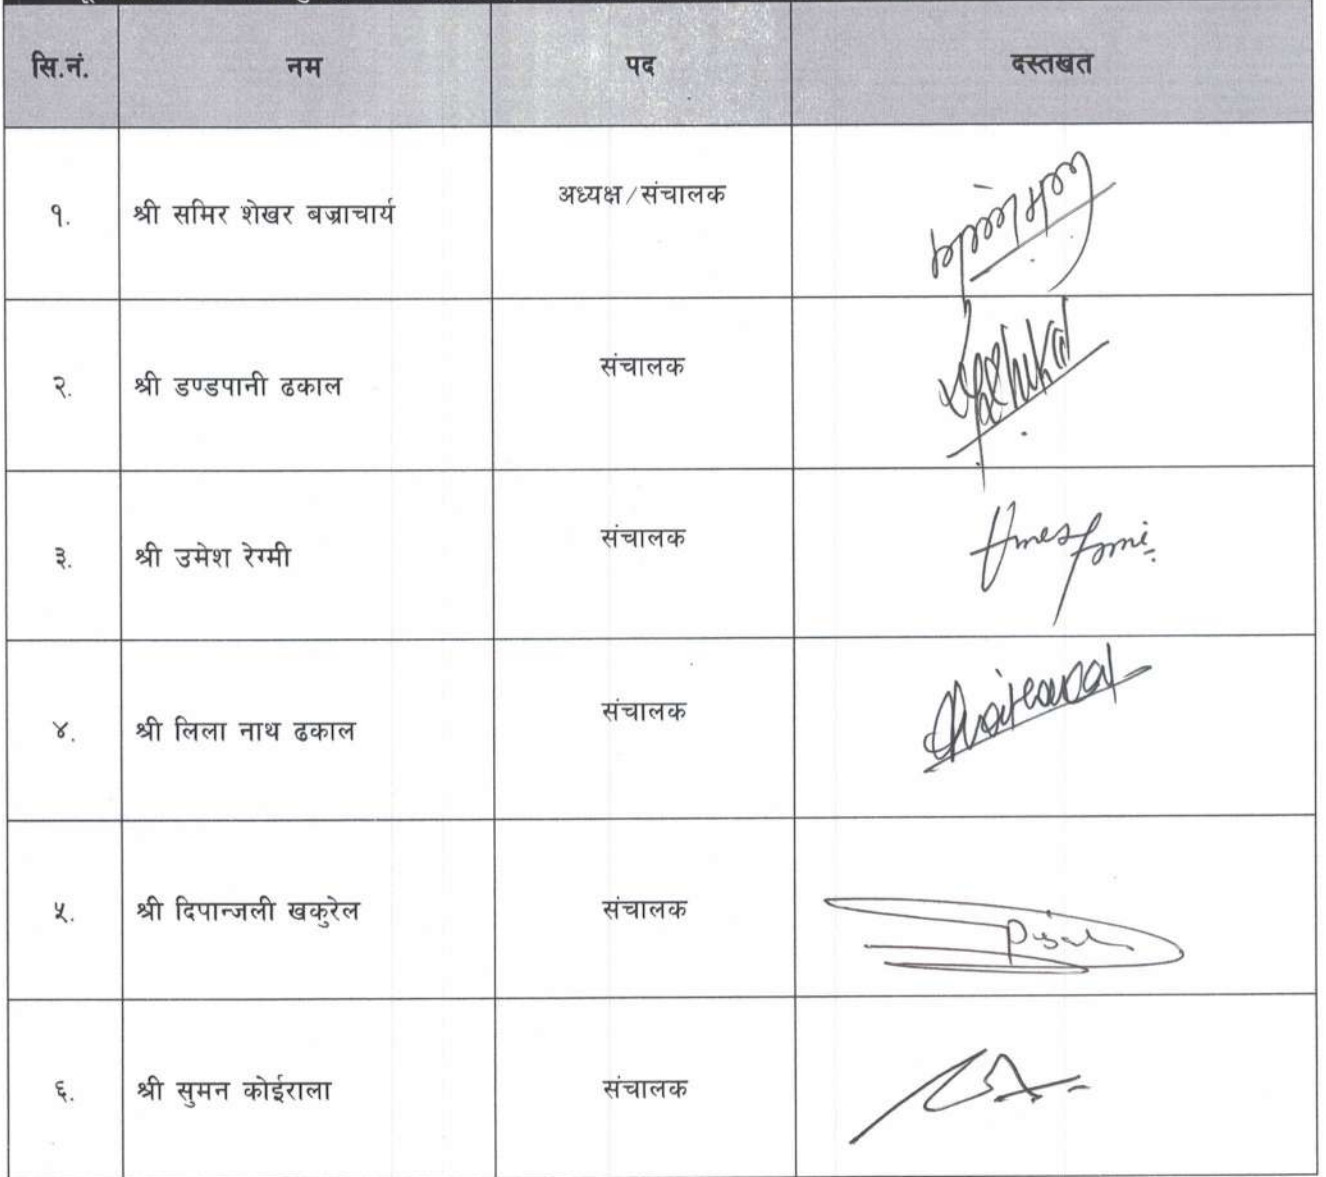 सि.नं. नम पद दस्तखत
१. श्री समिर शेखर बज्राचार्य अध्यक्ष/संचालक
२. श्री डण्डपानी ढकाल संचालक
३. श्री उमेश रेग्मी संचालक
४. श्री लिला नाथ ढकाल संचालक
५. श्री दिपान्जली खकुरेल संचालक
६. श्री सुमन कोईराला संचालक